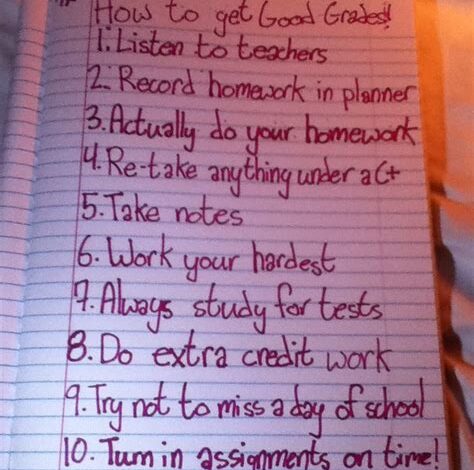 How to get Good Grades!!
1. Listen to teachers
2. Record homework in planner
3. Actually do your homework
4. Re-take anything under a C+
5. Take notes
6. Work your hardest
7. Always study for tests
8. Do extra credit work
9. Try not to miss a day of school
10. Turn in assignments on time!